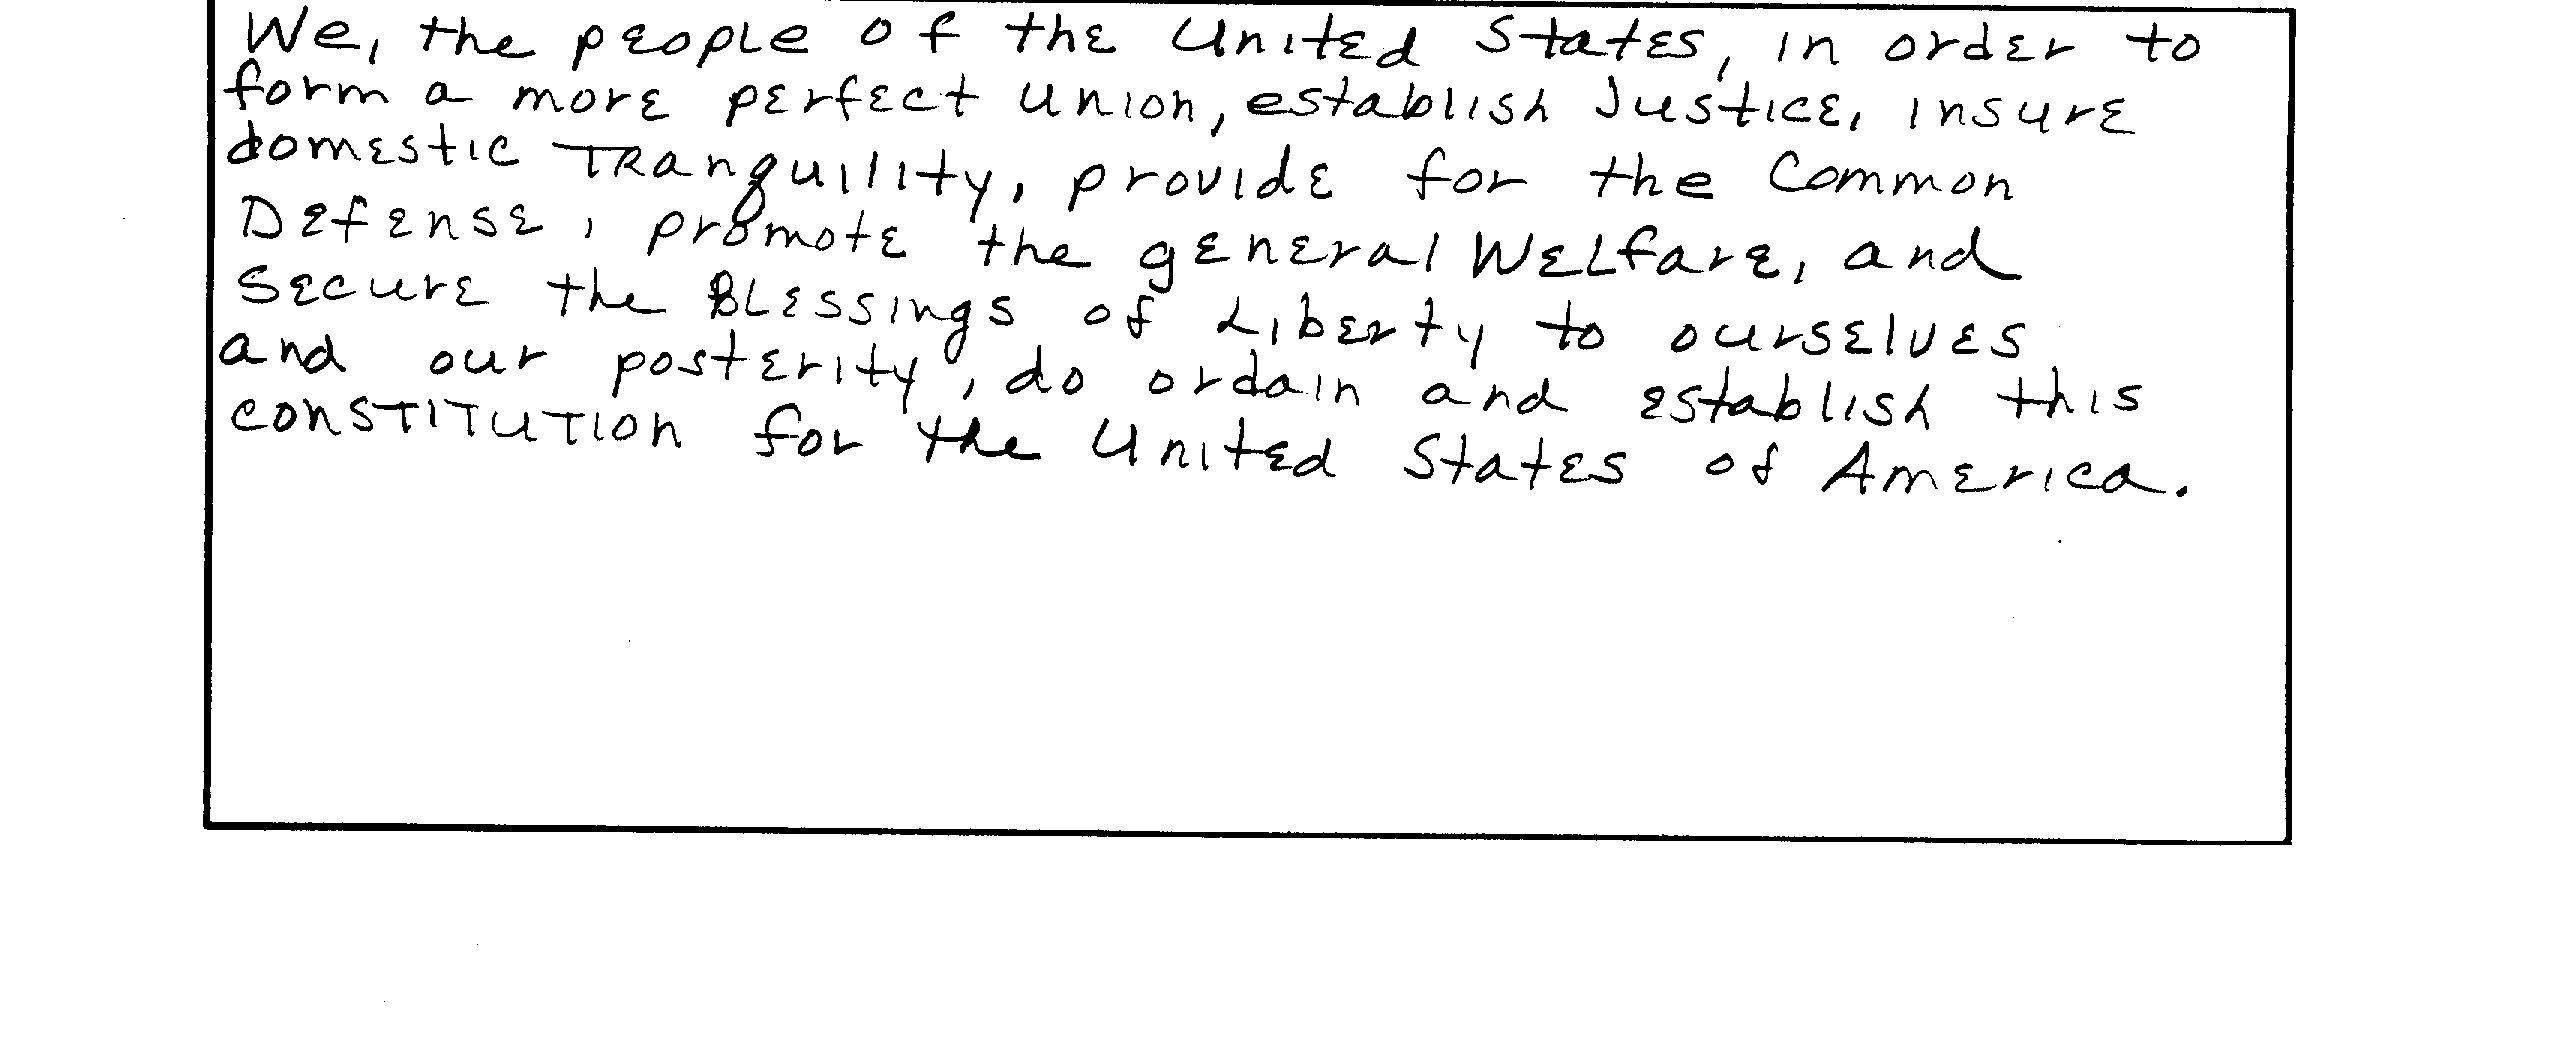 We, the people of the United States, in order to
form a more perfect union, establish Justice, insure
domestic Tranquility, provide for the Common
Defense, promote the general Welfare, and
secure the Blessings of Liberty to ourselves
and our posterity, do ordain and establish this
constitution for the United States of America.